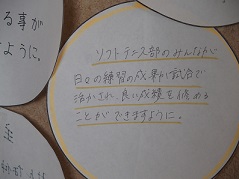 る事が
ように。
ソフトテニス部のみんなが
日々の練習の成果が試合で
活かされ、良い成績を修める
ことができますように。